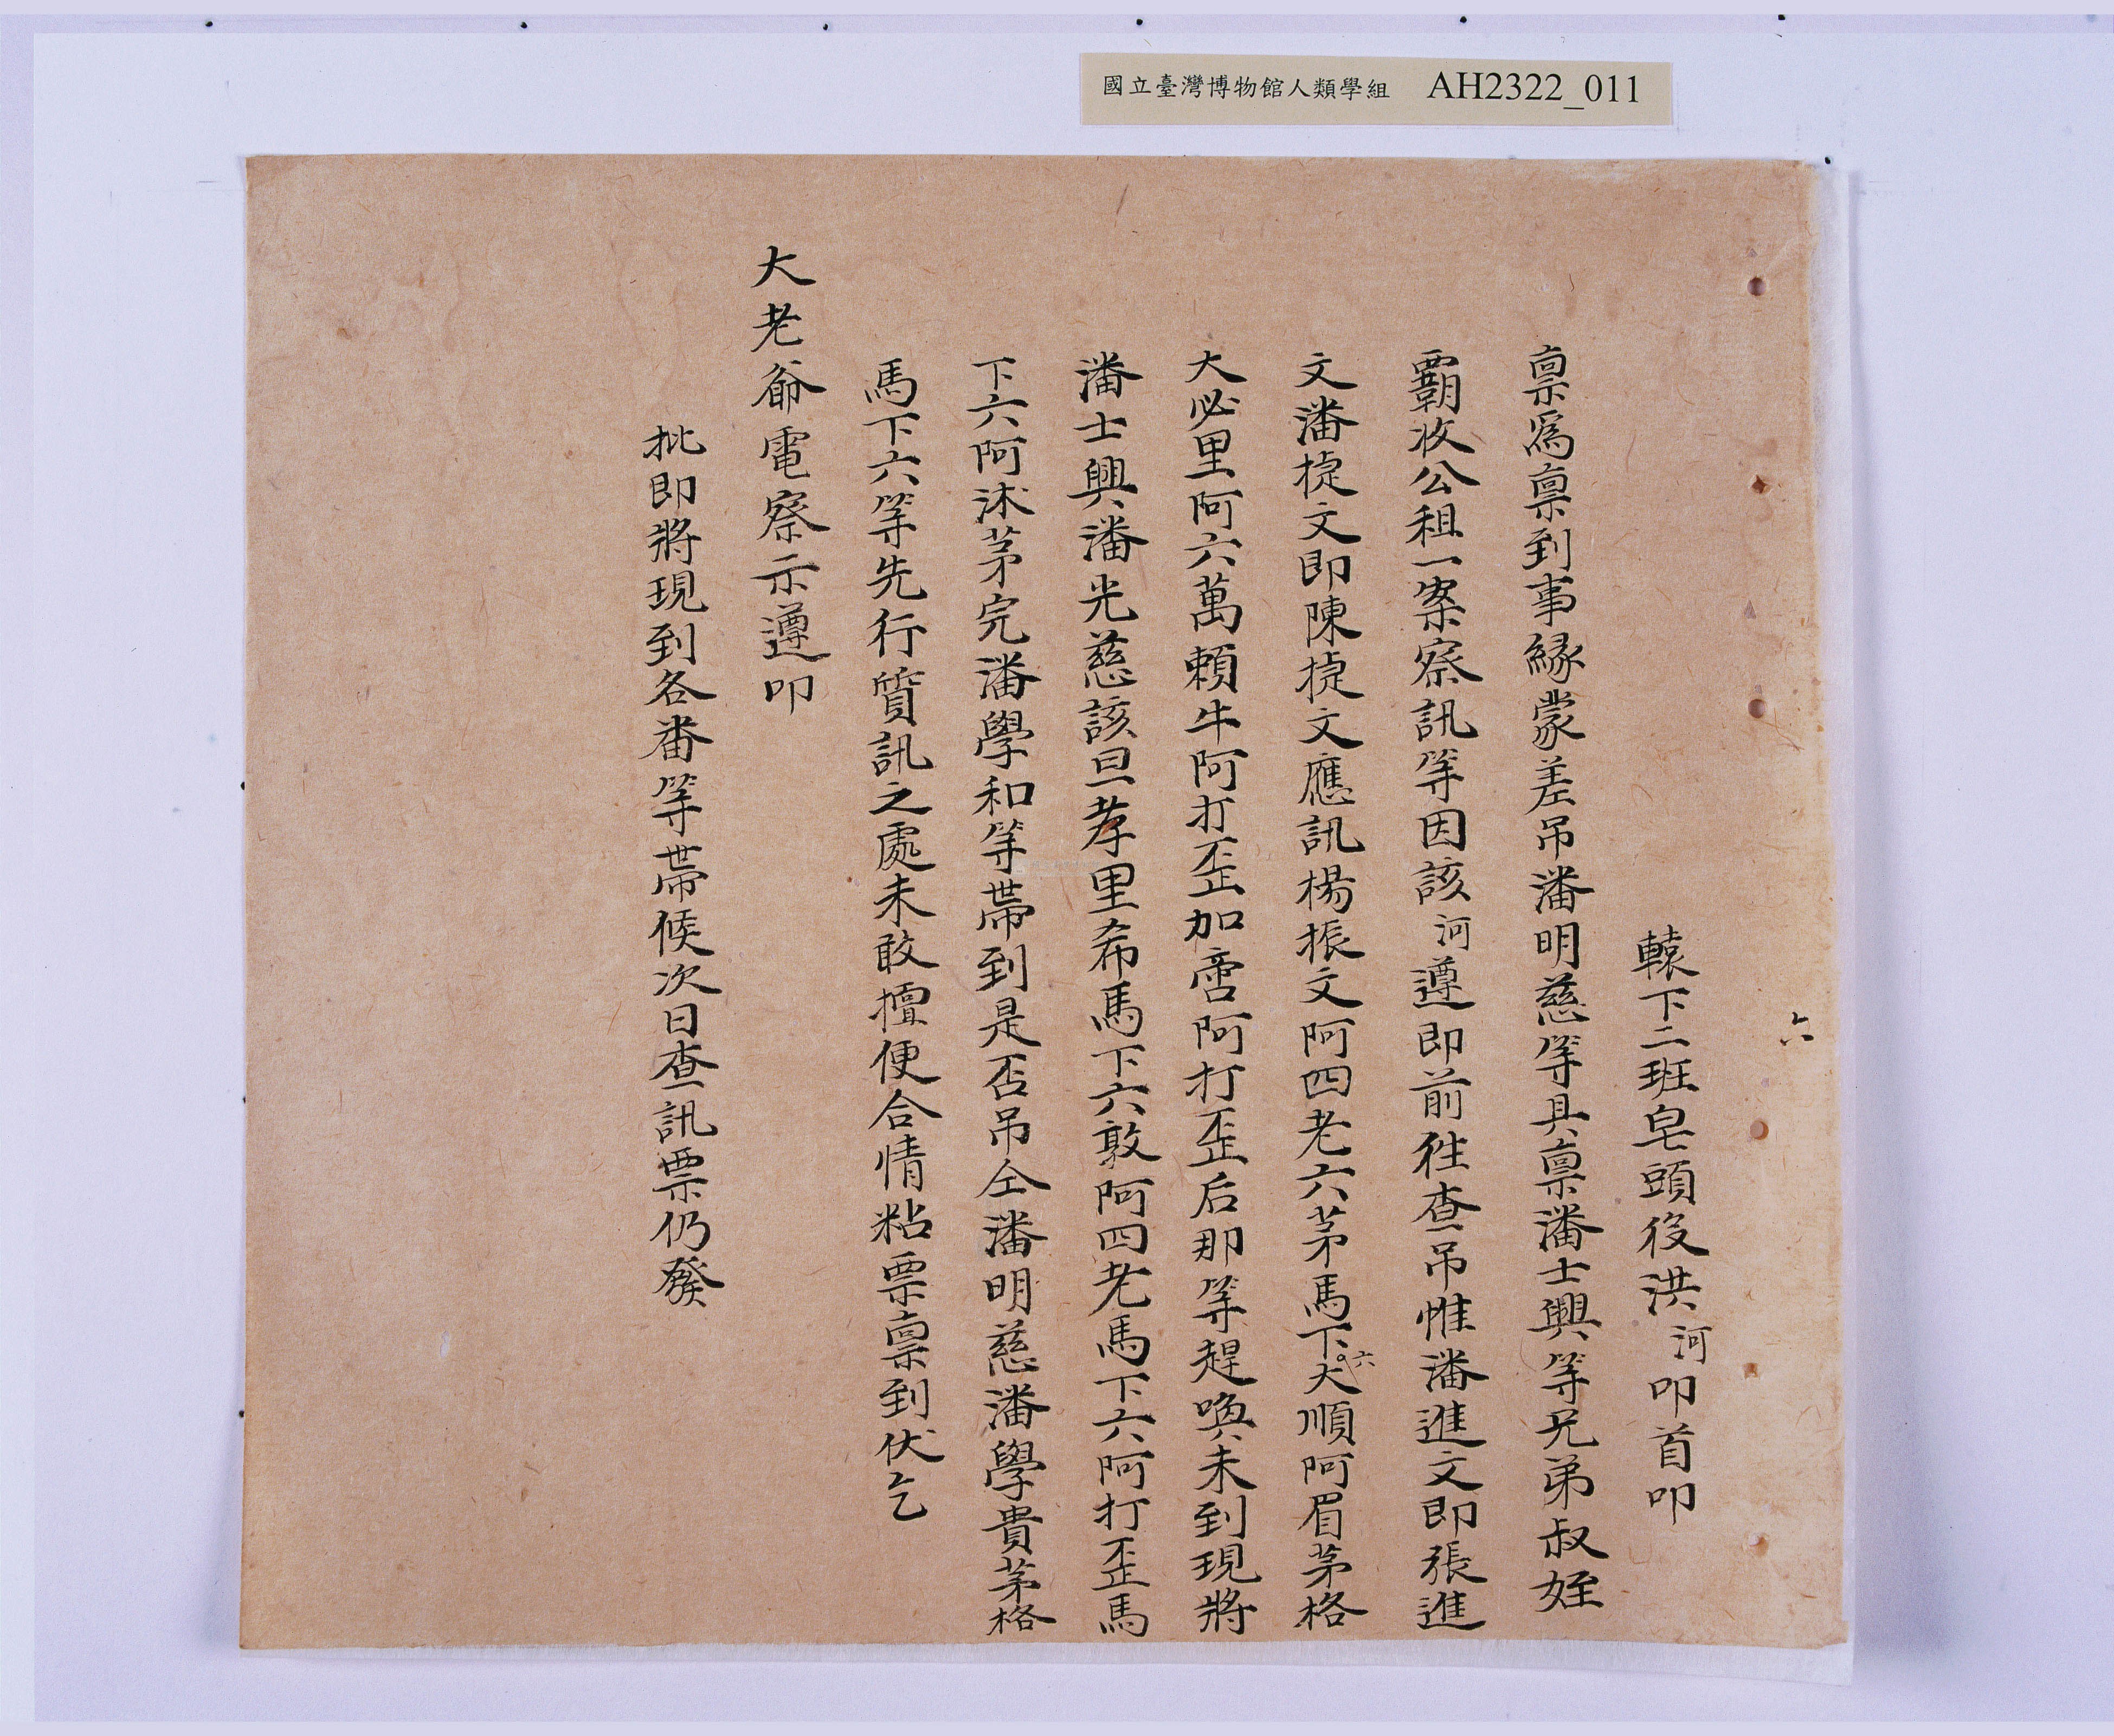 國立臺灣博物館人類學組 AH2322_011
六
轅下二班皂頭役洪河叩首叩
禀爲禀到事緣蒙差吊潘明慈等具禀潘士興等兄弟叔姪
覇收公租一案察訊等因該河遵即前徃查吊惟潘進文即張進
文潘㨗文即陳㨗文應訊楊振文阿四老六茅馬下六大順阿眉茅格
大必里阿六萬賴牛阿打歪加啻阿打歪后那等趕喚未到現將
潘士興潘光慈該旦孝里希馬下六敦阿四老馬下六阿打歪馬
下六阿沐茅完潘學和等帶到是否吊仝潘明慈潘學貴茅格
馬下六等先行質訊之處未敢擅便合情粘票禀到伏乞
大老爺電察示遵叩
批即將現到各番等帶候次日查訊票仍發